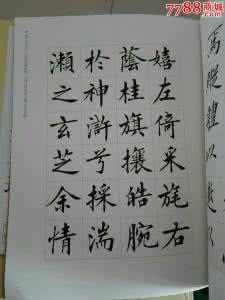 7788商城
焉縱體以遨以
嬉左倚采旄右
蔭桂旗攘皓腕
於神滸兮採湍
瀨之玄芝余情